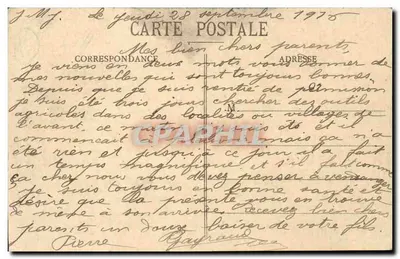 J.M.J. Le jeudi 28 septembre 1915
CARTE POSTALE
Mes bien chers parents,
CORRESPONDANCE ADRESSE
je viens en deux mots vous donner de
mes nouvelles qui sont toujours bonnes.
Depuis que je suis rentré de permission
je suis été trois jours chercher des outils
agricoles dans des localités ou villages de
l'avant, ce
commençait mais ça n'a
été rien et jusqu'à ce jour il a fait
un temps magnifique et s'il fait comme
ça chez nous vous devez penser à vendanger
je suis toujours en bonne santé et
désire que la présente vous en trouve
de même à son arrivée. recevez bien chers
parents un doux baiser de votre fils.
Pierre
CPAPHIL